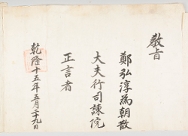 敎旨
鄭弘淳爲朝散
大夫行司諫院
正言者
乾隆十五年五月二十九日